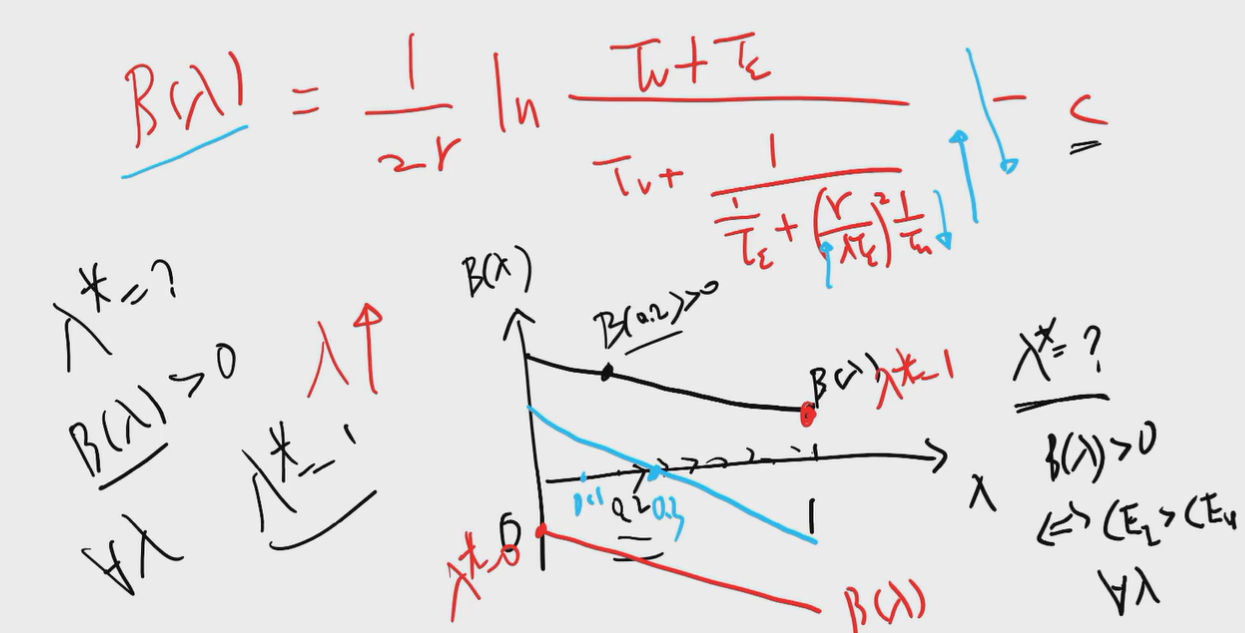 B(λ) = 1/2r ln (τv + τε) / (τv + 1/(1/τε + (r/λτε)² 1/τu)) - c
λ* = ?
B(λ) > 0
∀λ
λ ↑
λ* = 1
B(λ)
B(0.2) > 0
B(λ) λ* = 1
0.1 0.2 0.3 1
λ
0
λ* = 0
B(λ)
λ* = ?
B(λ) > 0
⇔ CE_I > CE_U
∀λ